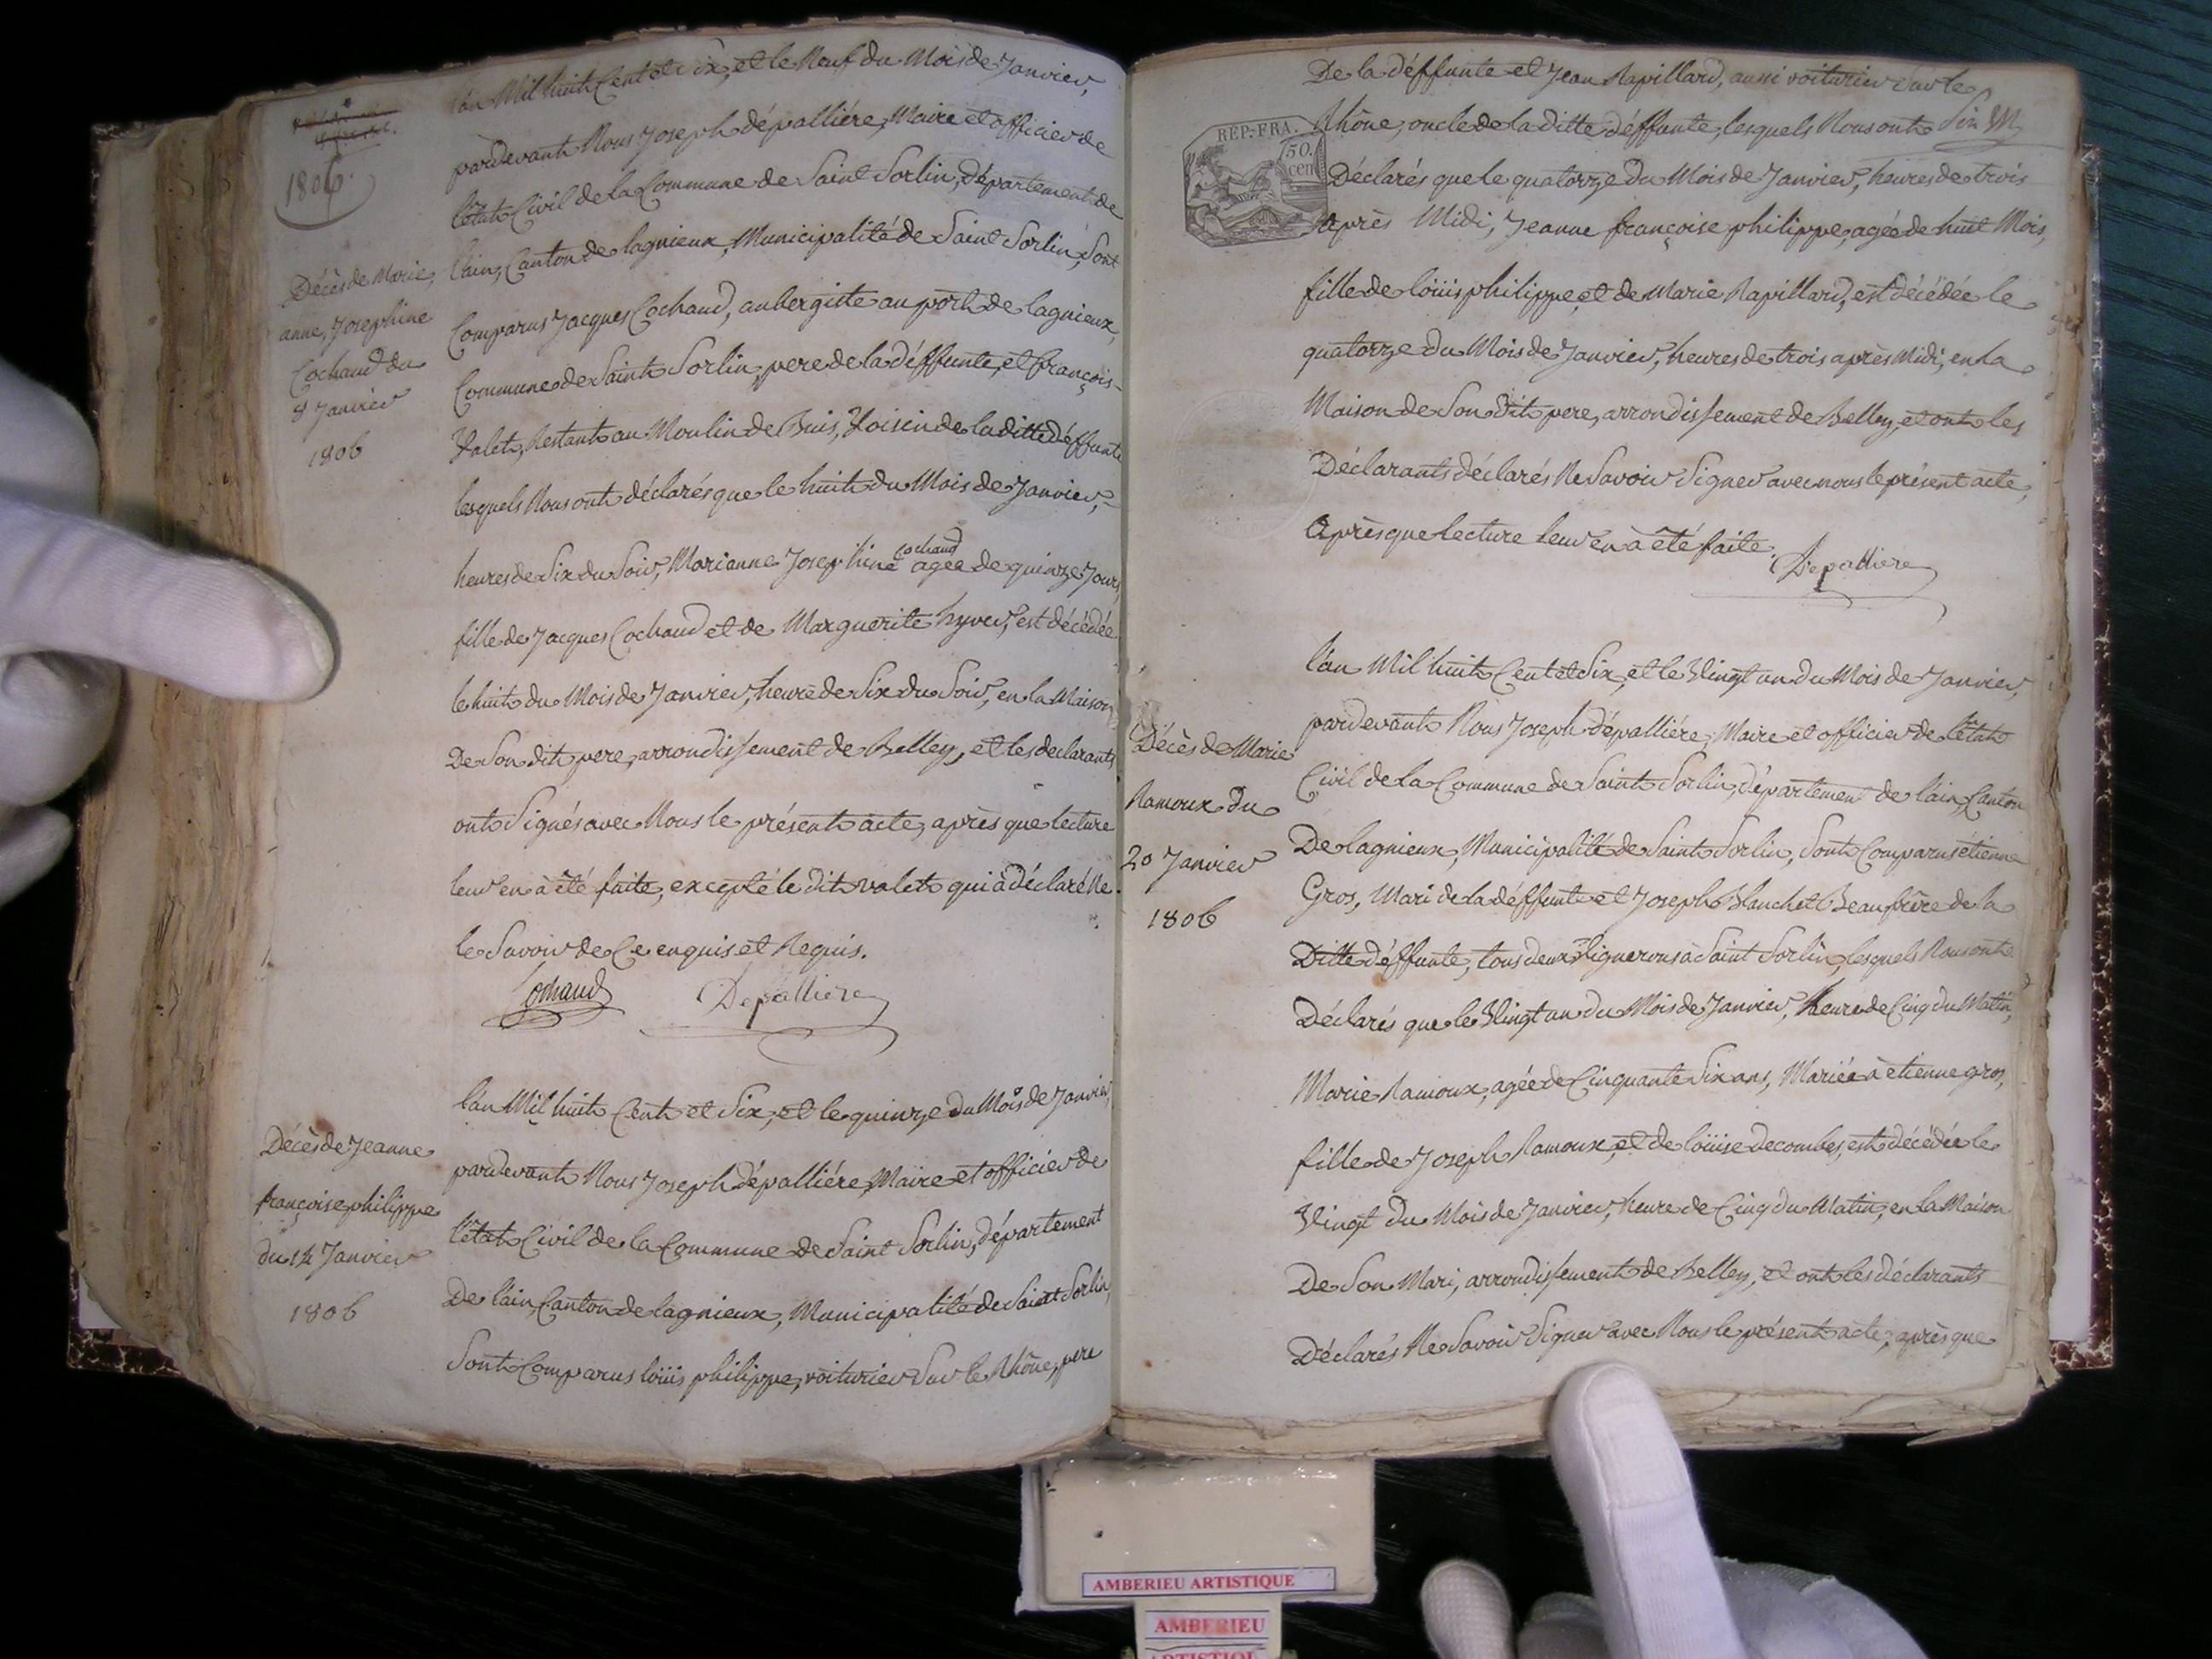 1806.
Décès de Marie
anne, Josephine
Cochaud du
8 Janvier
1806
l'an Mil huit Cent et Six, et le Neuf du Mois de Janvier,
pardevant Nous Joseph dépalliére, Maire et officier de
l'état Civil de la Commune de Saint Sorlin, département de
l'ain, Canton de lagnieux, Municipalité de Saint Sorlin, Sont
Comparus Jacques Cochaud, aubergiste au port de lagnieux,
Commune de Saint Sorlin, pere de la déffunte, et françois-
Valet, Restant au Moulin de Buis, Voisin de la ditte déffunte
lesquels Nous ont déclarés que le huit du Mois de Janvier,
heures de Six du Soir, Marianne Josephine cochaud agée de quinze Jours,
fille de Jacques Cochaud et de Marguerite hyver, est décédée
le huit du Mois de Janvier, heure de Six du Soir, en la Maison
De Son dit pere, arrondissement de Belley, et les declarants
ont Signés avec Nous le présent acte, après que lecture
leur en à été faite, excepté le dit valet qui à déclaré Ne
le Savoir de Ce enquis et Requis.
Cochaud Depalliere
Décès de Jeanne
françoise philippe
du 14 Janvier
1806
l'an Mil huit Cent et Six, et le quinze du Mois de Janvier,
pardevant Nous Joseph dépalliére, Maire et officier de
l'état Civil de la Commune de Saint Sorlin, département
De l'ain, Canton de lagnieux, Municipalité de Saint Sorlin,
Sont Comparus loüis philippe, voiturier Sur le Rhône, pere
De la déffunte et Jean Rapillard, aussi voiturier Sur le
Rhône, oncle de la ditte déffunte, lesquels Nous ont
REP. FRA.
50.
cen
Déclarés que le quatorze du Mois de Janvier, heures de trois
après Midi, Jeanne françoise philippe, agée de huit Mois,
fille de loüis philippe, et de Marie Rapillard, est décédée le
quatorze du Mois de Janvier, heures de trois après Midi, en la
Maison de Son dit pere, arrondissement de Belley, et ont les
Déclarants déclarés Ne Savoir Signer avec nous le présent acte,
après que lecture leur en à été faite.
Depalliere
Décès de Marie
Ramoux du
20 Janvier
1806
l'an Mil huit Cent et Six, et le Vingt un du Mois de Janvier,
pardevant Nous Joseph dépalliére, Maire et officier de l'état
Civil de la Commune de Saint Sorlin, département de l'ain, Canton
De lagnieux, Municipalité de Saint Sorlin, Sont Comparus étienne
Gros, Mari de la déffunte et Joseph Blanchet Beaufrère de la
Ditte déffunte, tous deux Vignerons à Saint Sorlin, lesquels Nous ont
Déclarés que le Vingt un du Mois de Janvier, heure de Cinq du Matin,
Marie Ramoux, agée de Cinquante Six ans, Mariée à etienne gros,
fille de Joseph Ramoux, et de loüise decombes, est décédée le
Vingt du Mois de Janvier, heure de Cinq du Matin, en la Maison
De Son Mari, arrondissement de Belley, et ont les déclarants
Déclarés Ne Savoir Signer avec Nous le présent acte, après que
AMBERIEU ARTISTIQUE
AMBERIEU
ARTISTIQUE